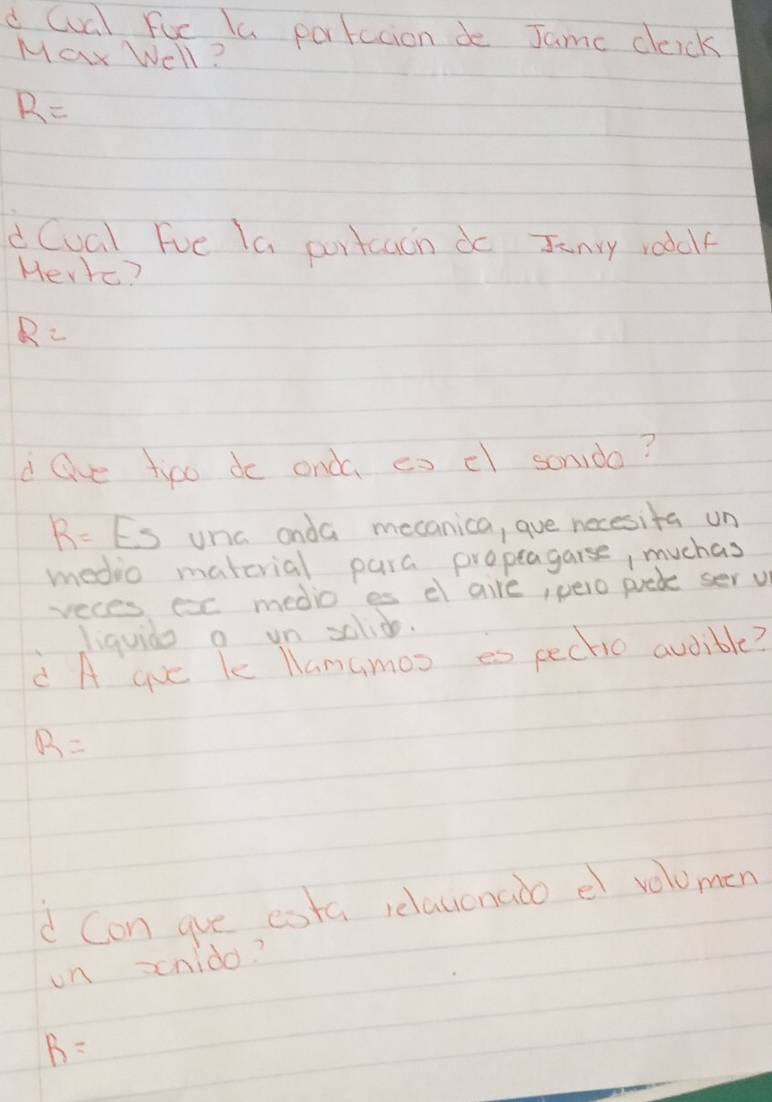 ¿Cual Fue la portacion de Jame clerck
Max Well?
R=
¿Cual Fue la portacion de Janry rodolf
Herte?
R=
¿Que tipo de onda es el sonido?
R= Es una onda mecanica, que necesita un
medio material para propragarse, muchas
veces ese medio es el aire, pero puede ser un
liquido o un solido.
¿A que le llamamos es pectro audible?
R=
¿Con que esta relacionado el volumen
un sonido?
R=